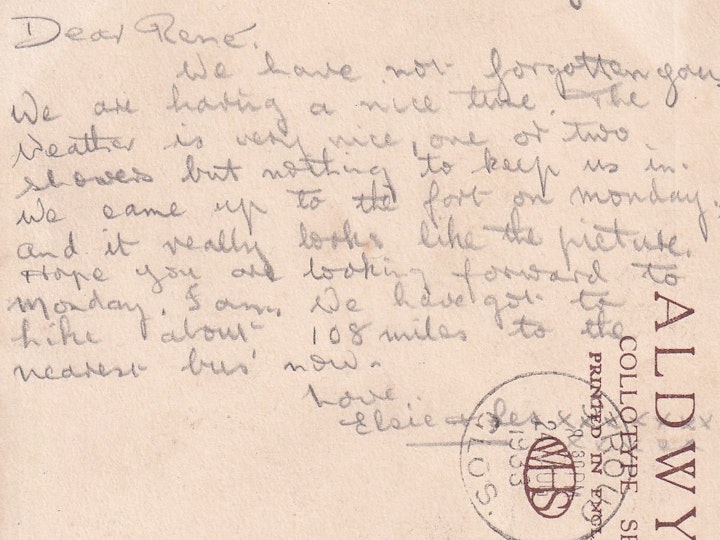 Dear René.
We have not forgotten you.
We are having a nice time. The
weather is very nice, one or two
showers but nothing to keep us in.
We came up to the fort on monday.
and it really looks like the picture.
Hope you are looking forward to
Monday. I am. We have got to
hike about 108 miles to the
nearest bus now.
Love.
Elsie + Les xxxxxxx
ALDWY
COLLOTYPE SE
PRINTED IN ENGL
1933
GLOS.